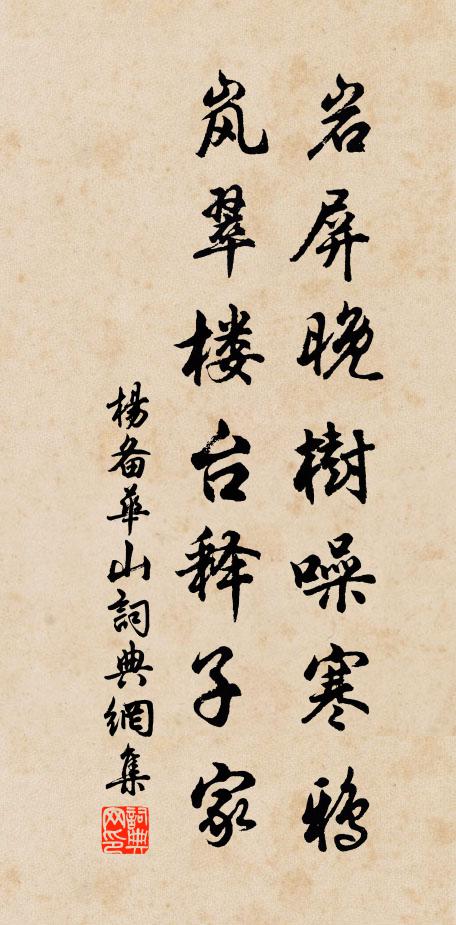 岩屏晚樹噪寒鸦
岚翠楼台释子家
楊备華山詞典網集
詞典网印